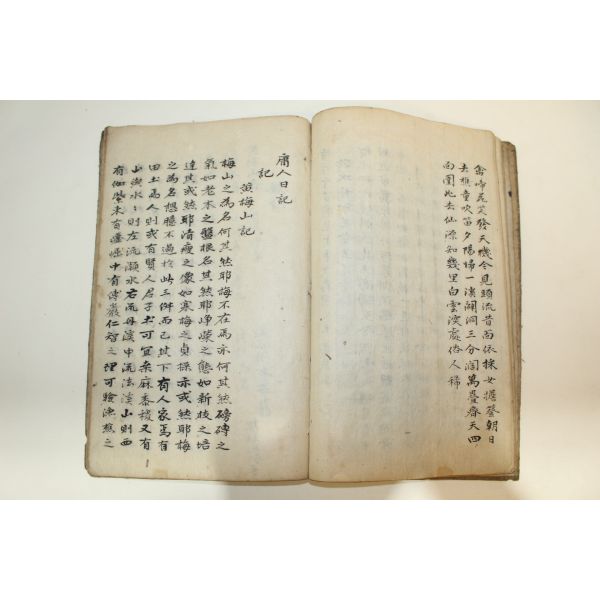 啼花笑發天機今見頭流昔尙依採女携蔡朝日
去樵童吹笛夕陽歸一溪開洞三分闊萬疊齊天四
面圍此去仙源知幾里白雲深處俗人稀
庸人日記
記
黃梅山記
梅山之爲名何其然耶梅不在焉亦何其然磅礴之
氣如老木之盤根名其然耶崢嶸之態如新枝之培
達其或然耶清瘦之像如寒梅之貞操亦或然耶梅
之爲名想應不過於此三件而已其下有人家焉有
田土焉人則或有賢人君子土可宜桑麻黍稷又有
山與水水則左流灝水右流丹溪中流法溪山則西
有伽紫末有中有傅巖仁智之理可驗漁樵之